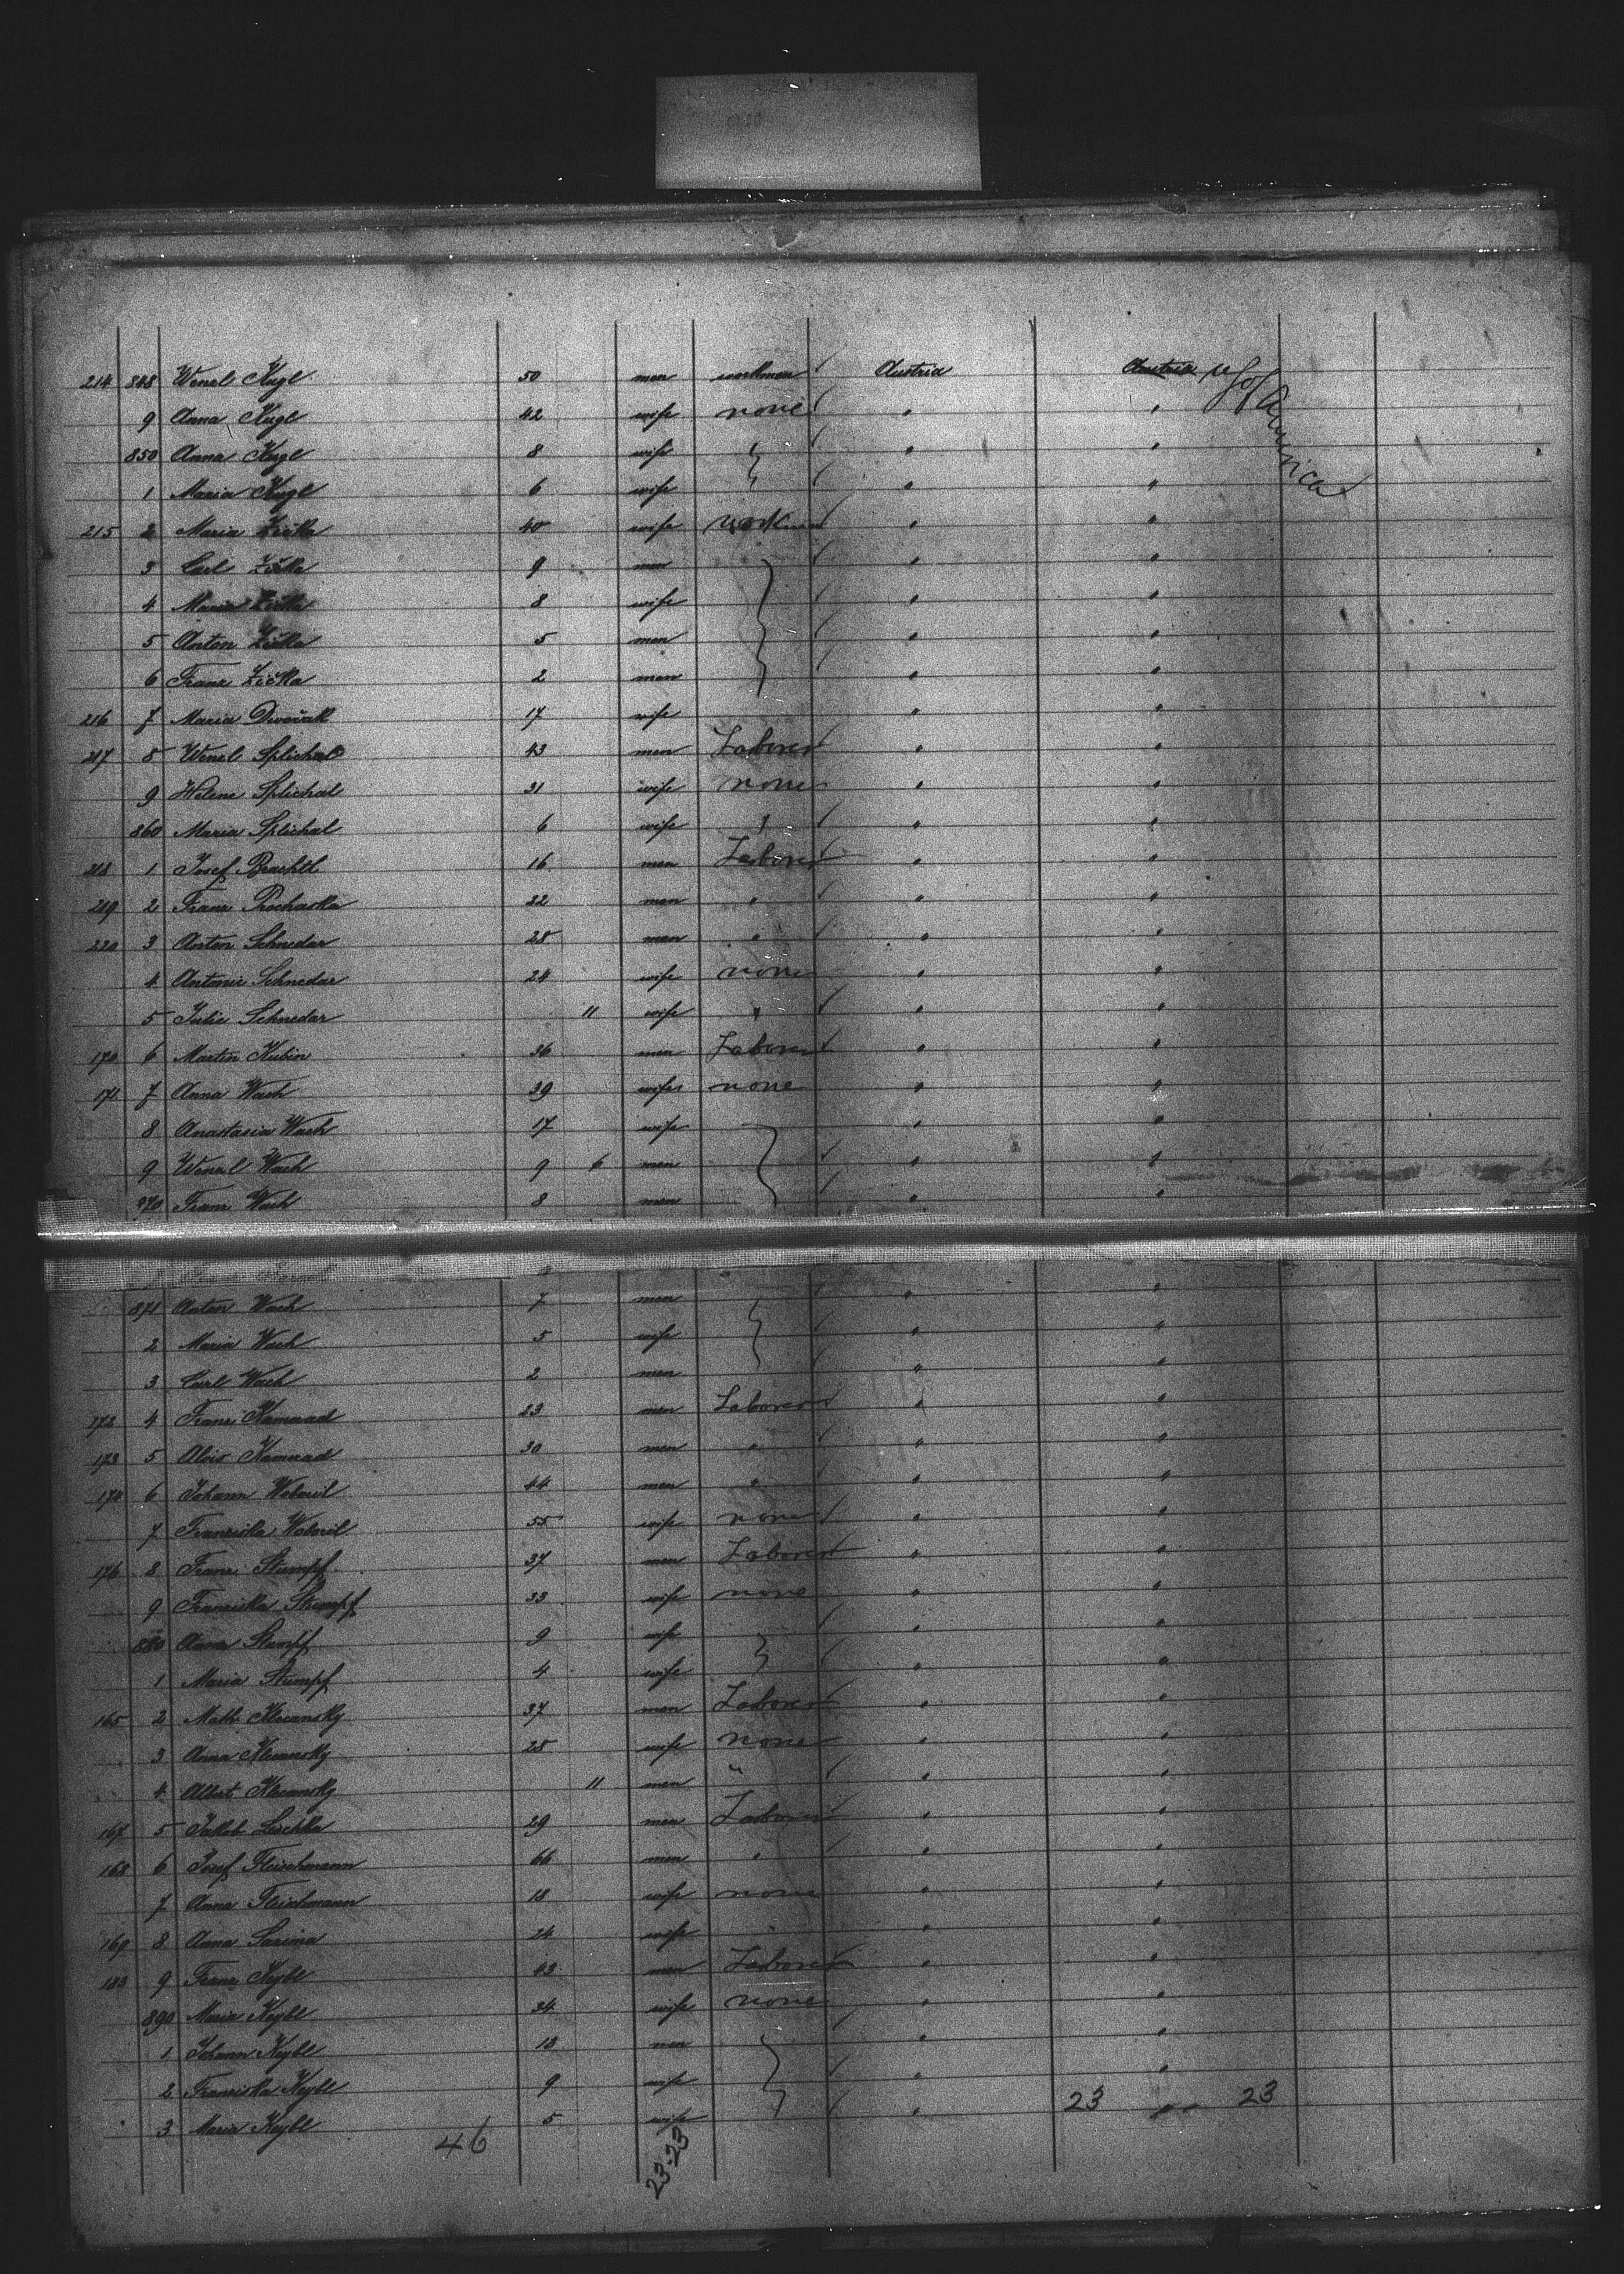 214 848 Wenzl Kugl 50 men workman Austria Austria U S of America
9 Anna Kugl 42 wife none " "
850 Anna Kugl 8 wife " "
1 Maria Kugl 6 wife " "
215 2 Maria Zička 40 wife workman " "
3 Carl Zička 9 men " "
4 Maria Zička 8 wife " "
5 Anton Zička 5 men " "
6 Franz Zička 2 men " "
216 7 Maria Dvořak 17 wife " "
217 8 Wenzl Splichal 43 men Laborer " "
9 Helene Splichal 31 wife none " "
860 Maria Splichal 6 wife " " "
218 1 Josef 16 men Laborer " "
219 2 Franz Prochaska 22 men " " "
220 3 Anton Schnedar 28 men " " "
4 Antonie Schnedar 24 wife none " "
5 Julie Schnedar 11 wife " " "
170 6 Martin Kubin 36 men Laborer " "
171 7 Anna Wach 39 wife none " "
8 Anastasia Wach 17 wife " "
9 Wenzl Wach 9 6 men " "
870 Franz Wach 8 men " "
871 Anton Wach 7 men " "
2 Maria Wach 5 wife " "
3 Carl Wach 2 men " "
172 4 Franz Kamarad 23 men Laborer " "
173 5 Alois Kamerad 30 men " " "
174 6 Johann 44 men " " "
7 Franziska 55 wife none " "
176 8 Franz Stumpf 37 men Laborer " "
9 Franziska Stumpf 33 wife none " "
880 Anna Stumpf 9 wife " "
1 Maria Stumpf 4 wife " "
165 2 Math. Klecansky 37 men Laborer " "
3 Anna Klecansky 28 wife none " "
4 Albert Klecansky 11 men " " "
167 5 Jakob Leschka 29 men Laborer " "
168 6 Josef Fleischmann 66 men " " "
7 Anna Fleischmann 18 wife none " "
169 8 Anna 24 wife " " "
183 9 Franz Keybl 43 men Laborer " "
890 Maria Keybl 34 wife none " "
1 Johann Keybl 13 men " "
2 Franziska Keybl 9 wife " "
3 Maria Keybl 5 wife " 23 " " 23
46 23-23